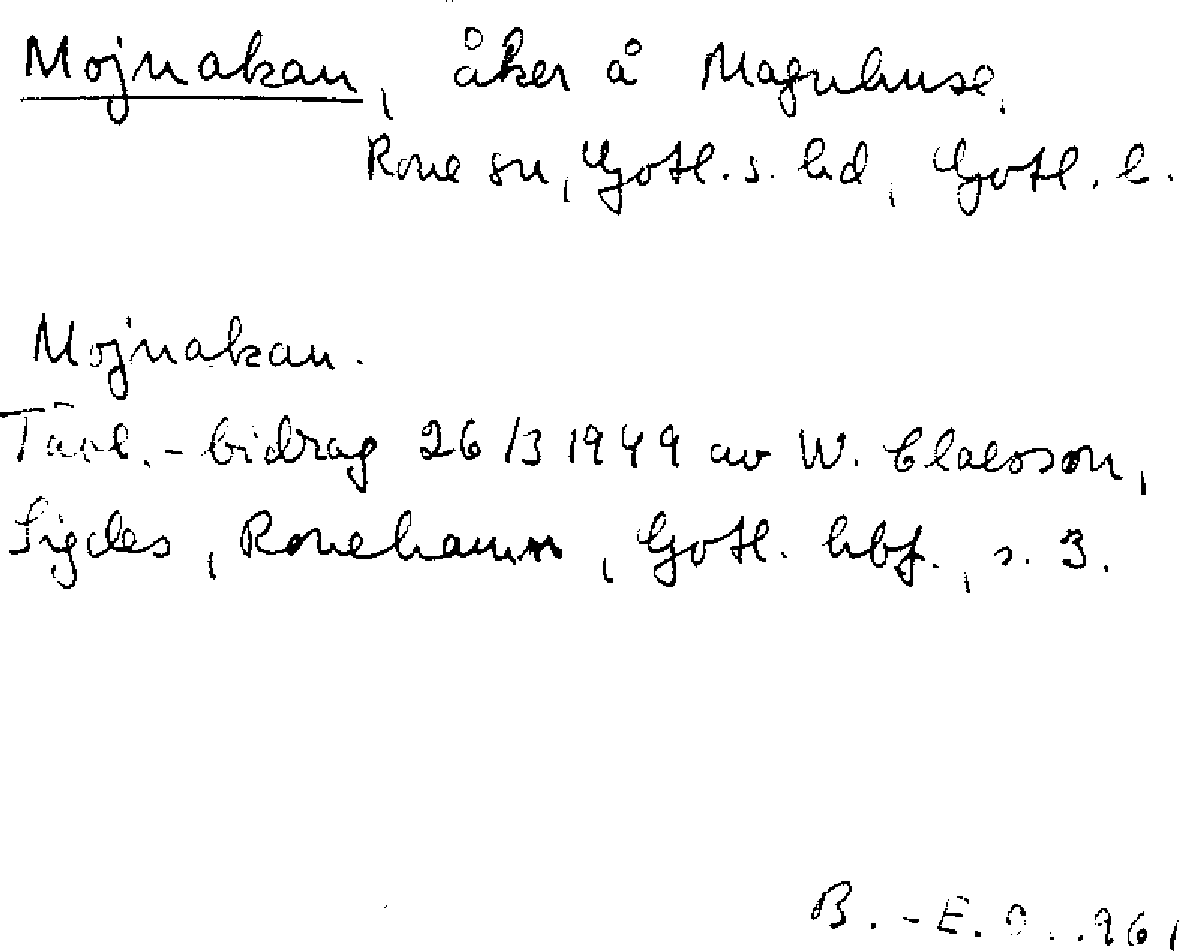 Mojnakan, åker å Magnhuse,
Rone sn, Gotl. s. hd, Gotl. l.
Mojnakan.
Tävl.-bidrag 26/3 1949 av W. Claesson,
Sigdes, Ronehamn, Gotl. hbf., s. 3.
B.-E. O. .961